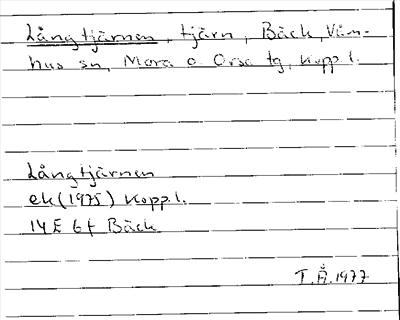 Långtjärnen, tjärn, Bäck, Våm-
hus sn, Mora o. Orsa tg, Kopp.l.
Långtjärnen
ek (1975) Kopp.l.
14E 6f Bäck
T.Å. 1977